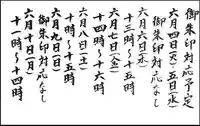 御朱印対応予定
六月四日(火)・五日(水)
御朱印対応なし
六月六日(木)
十三時〜十五時
六月七日(金)
十四時〜十六時
六月八日(土)
十時〜十五時
六月九日(日)
御朱印対応なし
六月十日(月)
十一時〜十四時